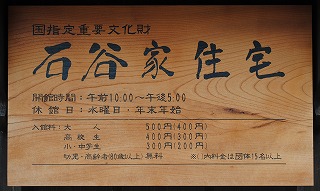 国指定重要文化財
石谷家住宅
開館時間：午前10:00〜午後5:00
休館日：水曜日・年末年始
入館料：大人 500円(400円)
高校生 400円(300円)
小・中学生 300円(200円)
幼児・高齢者(80歳以上) 無料 ※( )内料金は団体15名以上